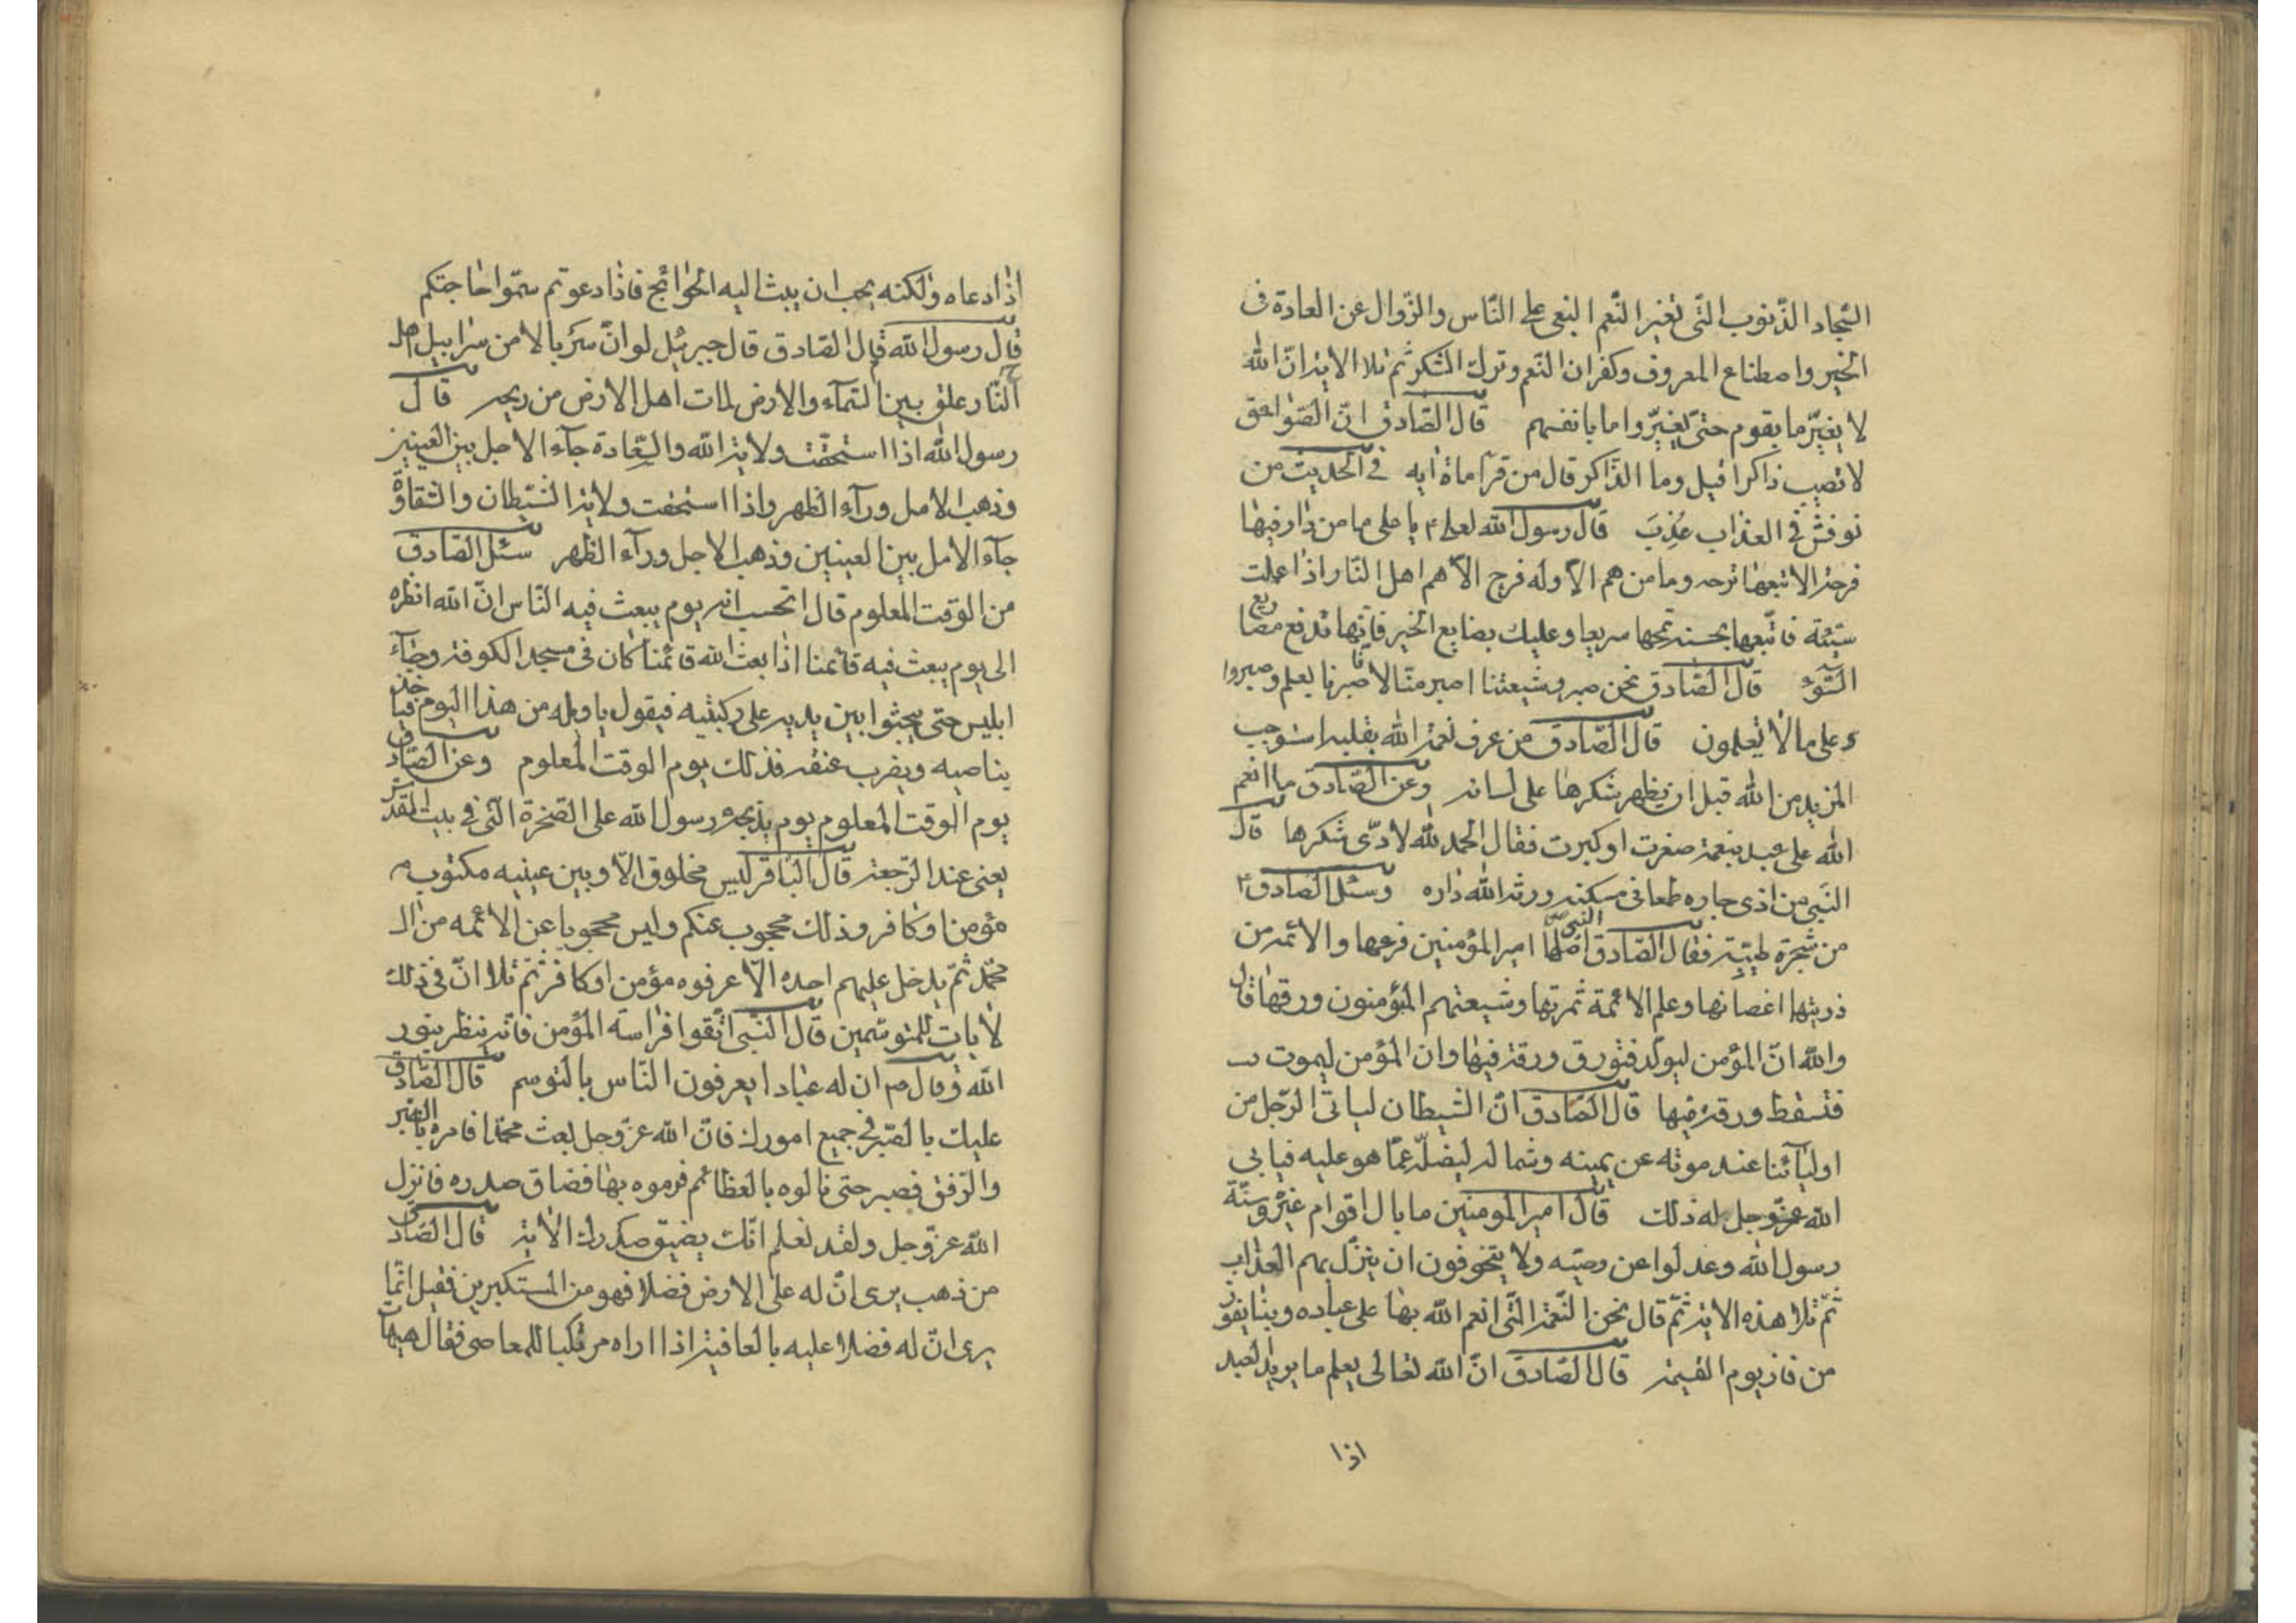 السّجاد الذّنوب الّتى تغير النّعم البغى على النّاس والزّوال عن العادة فى
الخير واصطناع المعروف وكفران النّعم وترك الشّكر ثمّ تلا الاية انّ الله
لا يغيّر ما بقوم حتىّ يغيّروا ما بانفسهم قال الصّادق انّ الصّواعق
لا تصيب ذاكرا قيل وما الذّاكر قال من قرأ ماة اية فى الحديث من
نوقش فى العذاب عُذِبَ قال رسول الله لعلى ۴ يا على ما من دار فيها
فرحة الا تبعها ترحه وما من هم الاّ وله فرج الاّ هم اهل النّار اذا عملت
سيّئة فاتّبعها بحسنة تمحها سريعا وعليك بصنايع الخير فانّها تدفع مصارع
السّوء قال الصّادق نحن صبر وشيعتنا اصبر منّا لانا صبرنا بعلم وصبروا
على ما لا يعلمون قال الصّادق من عرف نعمة الله بقلبه استوجب
المزيد من الله قبل ان يظهر شكرها على لسانه وعن الصّادق ما انعم
الله على عبد بنعمة صغرت او كبرت فقال الحمد لله لا ادّى شكرها قال
النّبى من اذى جاره طمعا فى مسكنه ورثه الله داره وسئل الصّادق ۴
من شجرة طيّبة فقال الصّادق النبىّ اصلها امير المؤمنين فرعها والائمه من
ذريتها اغصانها وعلم الائمة ثمرتها وشيعتهم المؤمنون ورقها قال
والله انّ المؤمن ليولد فتورق ورقة فيها وان المؤمن ليموت
فتسقط ورقة فيها قال الصّادق انّ الشيطان لياتى الرّجل من
اوليآئنا عند موته عن يمينه وشماله ليضلّه عمّا هو عليه فيابى
الله عزّوجل له ذلك قال امير المومنين ما بال اقوام غيّروا سنّة
رسول الله وعدلوا عن وصيّه ولا يتخوفون ان ينزّل بهم العذاب
ثمّ تلا هذه الاية ثمّ قال نحن النّعمة الّتى انعم الله بها على عباده وبنا يفوز
من فاز يوم القيمة قال الصّادق انّ الله تعالى يعلم ما يريد العبد
اذا
اذا دعاه ولكنه يحب ان يبث اليه الحوائج فاذا دعوتم سمّوا حاجتكم
قال رسول الله قال الصّادق قال جبرئيل لو انّ سربالا من سرابيل اهل
النّار علق بين السّمآء والارض لمات اهل الارض من ريحه قال
رسول الله اذا استحقّت ولاية الله والسّعادة جآء الاجل بين العينين
وذهب الامل ورآء الظهر واذا استحقت ولاية الشّيطان والشّقاوة
جآء الامل بين العينين وذهب الاجل ورآء الظهر سئل الصّادق
من الوقت المعلوم قال اتحسب انه يوم يبعث فيه النّاس انّ الله انظره
الى يوم يبعث فيه قائمنا اذا بعث الله قائمنا كان فى مسجد الكوفة وجآء
ابليس حتى يجثوا بين يديه على ركبتيه فيقول يا ويله من هذا اليوم فياخذ
بناصيه ويضرب عنقه فذلك يوم الوقت المعلوم وعن الصّادق
يوم الوقت المعلوم يوم يذبحه رسول الله على الصّخرة الّتى فى بيت المقدس
يعنى عند الرّجعة قال الباقر ليس مخلوق الاّ وبين عينيه مكتوب
مؤمن او كافر وذلك محجوب عنكم وليس محجوبا عن الائمه من ال
محمّد ثمّ يدخل عليهم احد الاّ عرفوه مؤمن او كافر ثمّ تلا انّ فى ذلك
لايات للمتوسّمين قال النّبى اتّقوا فراسة المؤمن فانّه ينظر بنور
الله وقال ص ان له عبادا يعرفون النّاس بالتوسم قال الصّادق
عليك بالصّبر فى جميع امورك فانّ الله عزّ وجل بعث محمّدا فامره بالصّبر
والرّفق فصبر حتى نالوه بالعظائم فرموه بها فضاق صدره فانزل
الله عزّ وجل ولقد نعلم انّك يضيق صدرك الاية قال الصّادق
من ذهب يرى انّ له على الارض فضلا فهو من المستكبرين فقيل انّما
يرى انّ له فضلا عليه بالعافية اذا اراه مرتكبا للمعاصى فقال هيهات